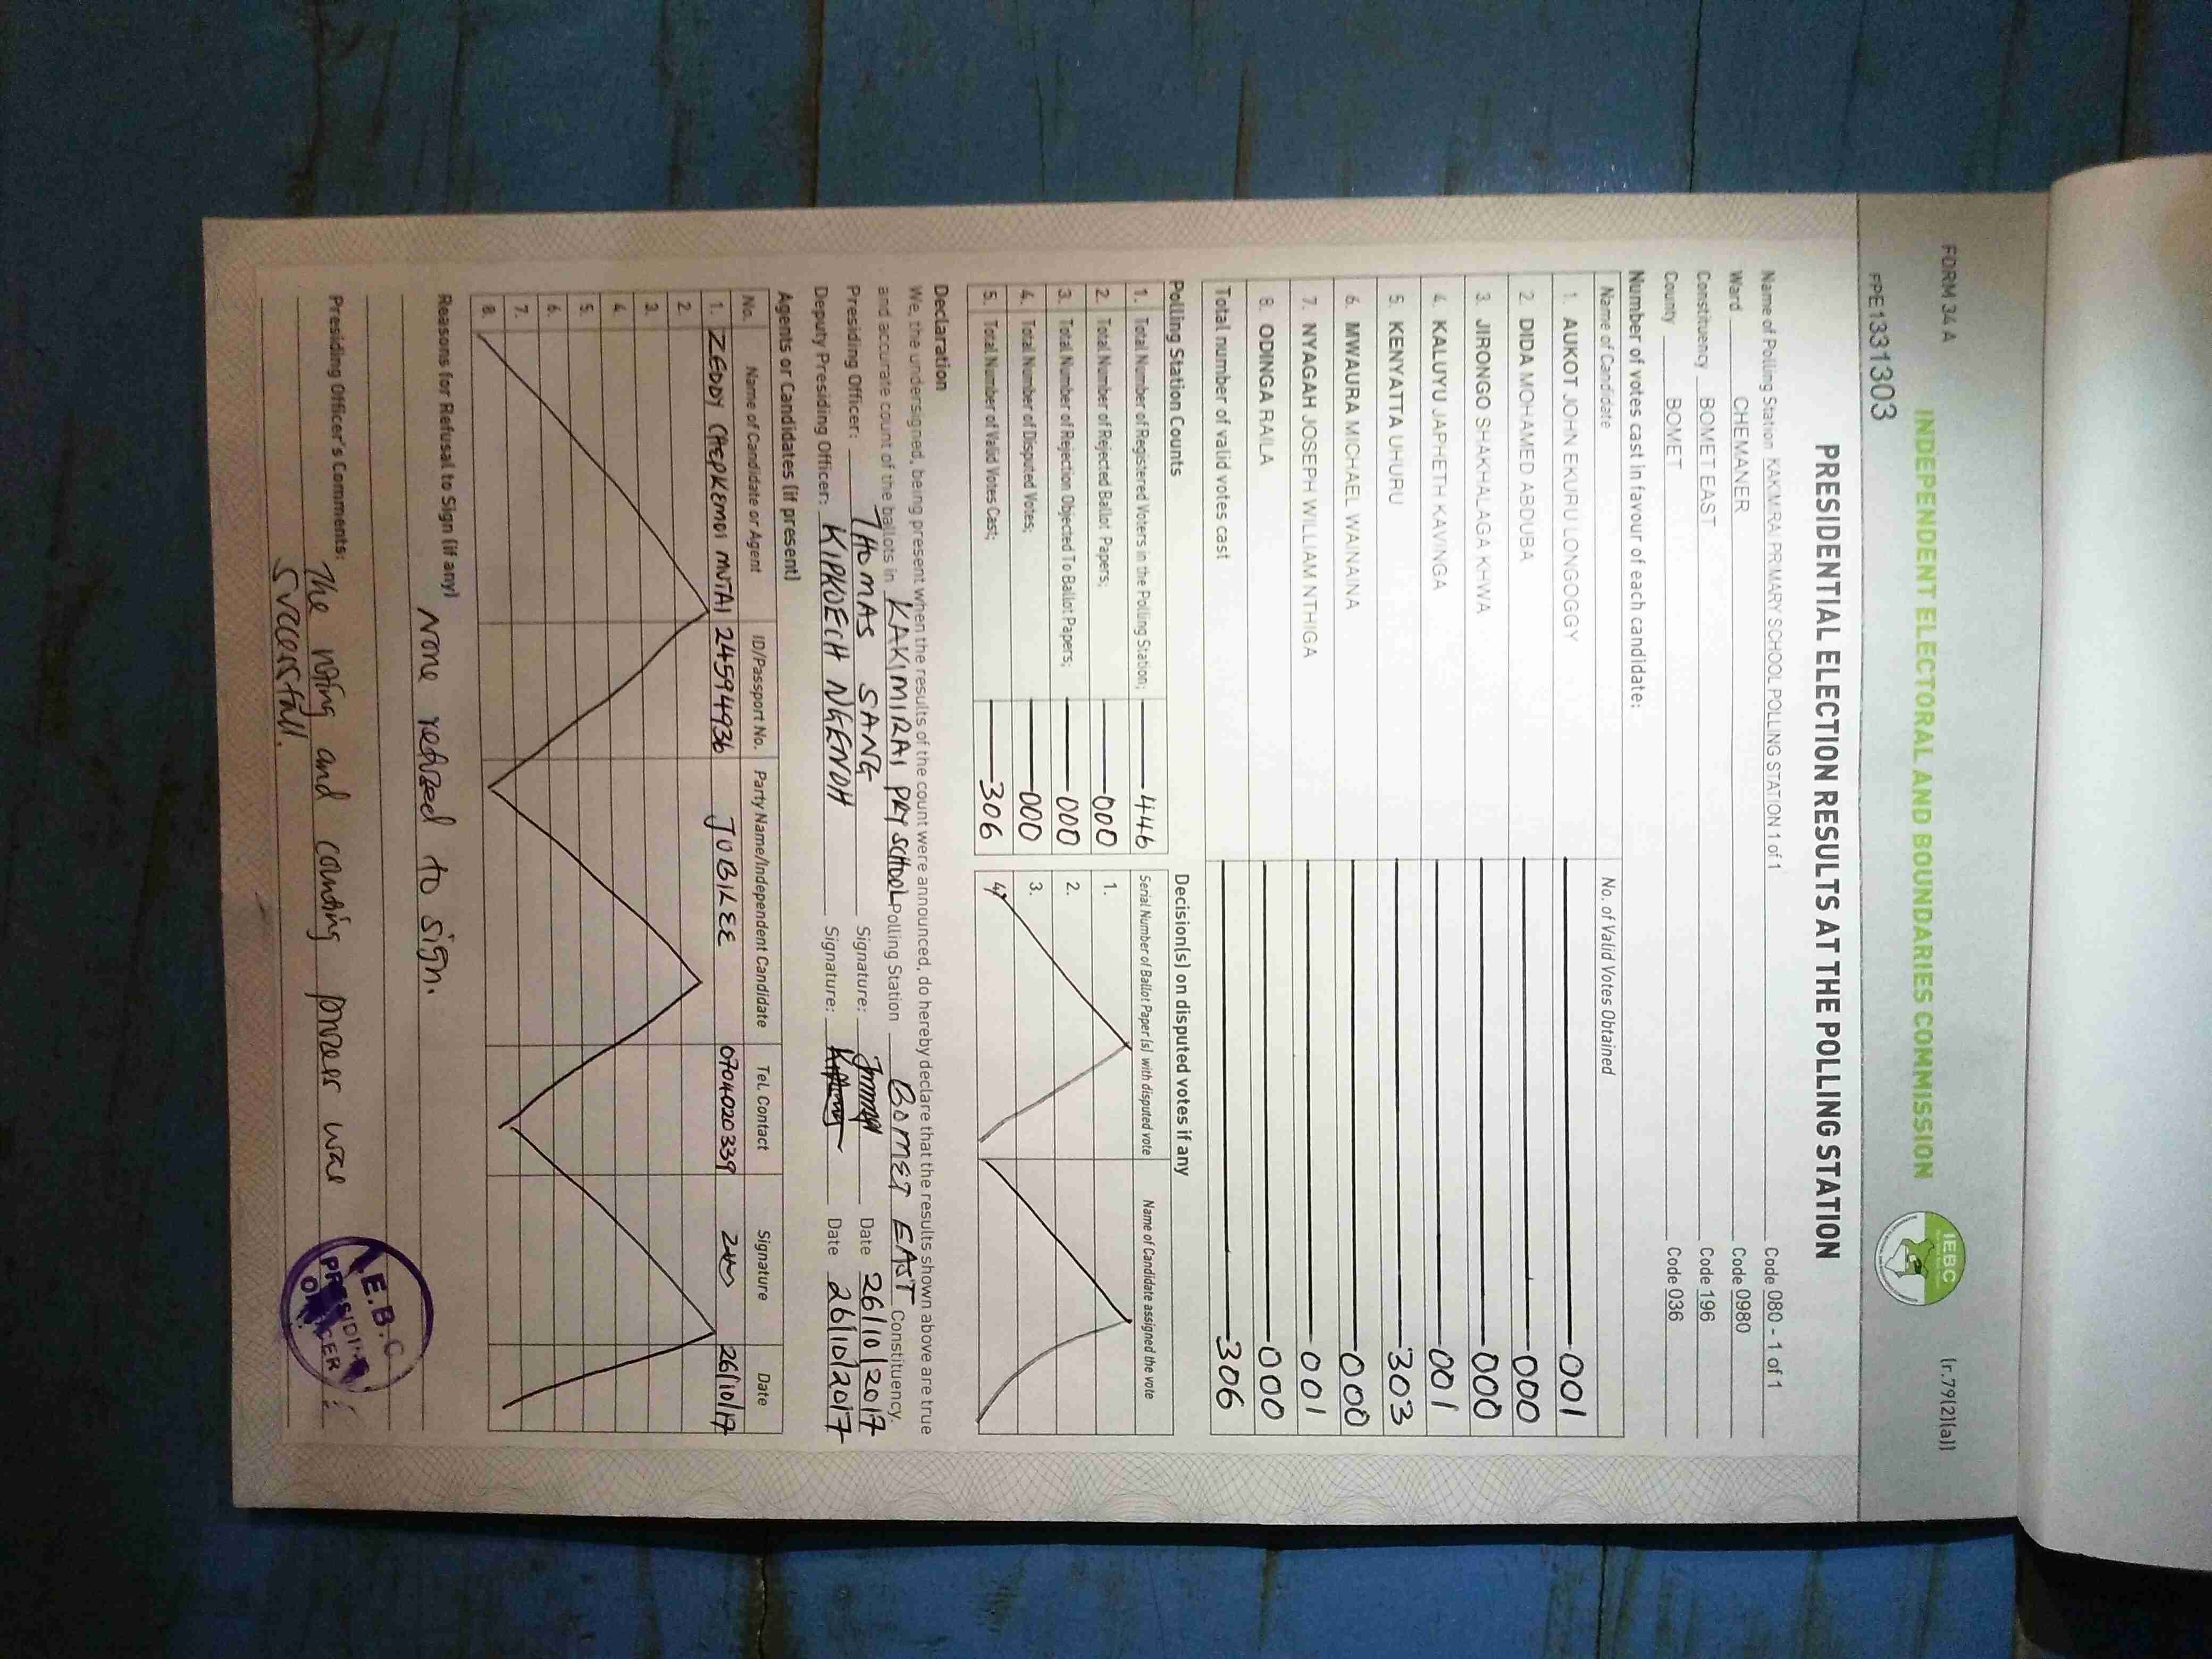 FORM 34 A
(r.79(2)(a))
INDEPENDENT ELECTORAL AND BOUNDARIES COMMISSION
IEBC
PPE1331303
PRESIDENTIAL ELECTION RESULTS AT THE POLLING STATION
Name of Polling Station KAKIMIRAI PRIMARY SCHOOL POLLING STATION 1 of 1 Code 080 - 1 of 1
Ward CHEMANER Code 0980
Constituency BOMET EAST Code 196
County BOMET Code 036
Number of votes cast in favour of each candidate:
Name of Candidate No. of Valid Votes Obtained
1. AUKOT JOHN EKURU LONGOGGY 001
2. DIDA MOHAMED ABDUBA 000
3. JIRONGO SHAKHALAGA KHWA 000
4. KALUYU JAPHETH KAVINGA 001
5. KENYATTA UHURU 303
6. MWAURA MICHAEL WAINAINA 000
7. NYAGAH JOSEPH WILLIAM NTHIGA 001
8. ODINGA RAILA 000
Total number of valid votes cast 306
Polling Station Counts Decision(s) on disputed votes if any
1. Total Number of Registered Voters in the Polling Station; 446 Serial Number of Ballot Paper (s) with disputed vote Name of Candidate assigned the vote
2. Total Number of Rejected Ballot Papers; 000 1.
3. Total Number of Rejection Objected To Ballot Papers; 000 2.
4. Total Number of Disputed Votes; 000 3.
5. Total Number of Valid Votes Cast; 306 4.
Declaration
We, the undersigned, being present when the results of the count were announced, do hereby declare that the results shown above are true
and accurate count of the ballots in KAKIMIRAI PRY SCHOOL Polling Station BOMET EAST Constituency.
Presiding Officer: THOMAS SANG Signature: Date 26/10/2017
Deputy Presiding Officer: KIPKOECH NGENOH Signature: Date 26/10/2017
Agents or Candidates (if present)
No. Name of Candidate or Agent ID/Passport No. Party Name/Independent Candidate Tel. Contact Signature Date
1. ZEDDY CHEPKEMOI MUTAI 24594936 JUBILEE 0704020339 26/10/17
2.
3.
4.
5.
6.
7.
8.
Reasons for Refusal to Sign (if any) None refused to sign.
Presiding Officer's Comments: The voting and counting process was
successfull.
I.E.B.C
PRESIDING
OFFICER